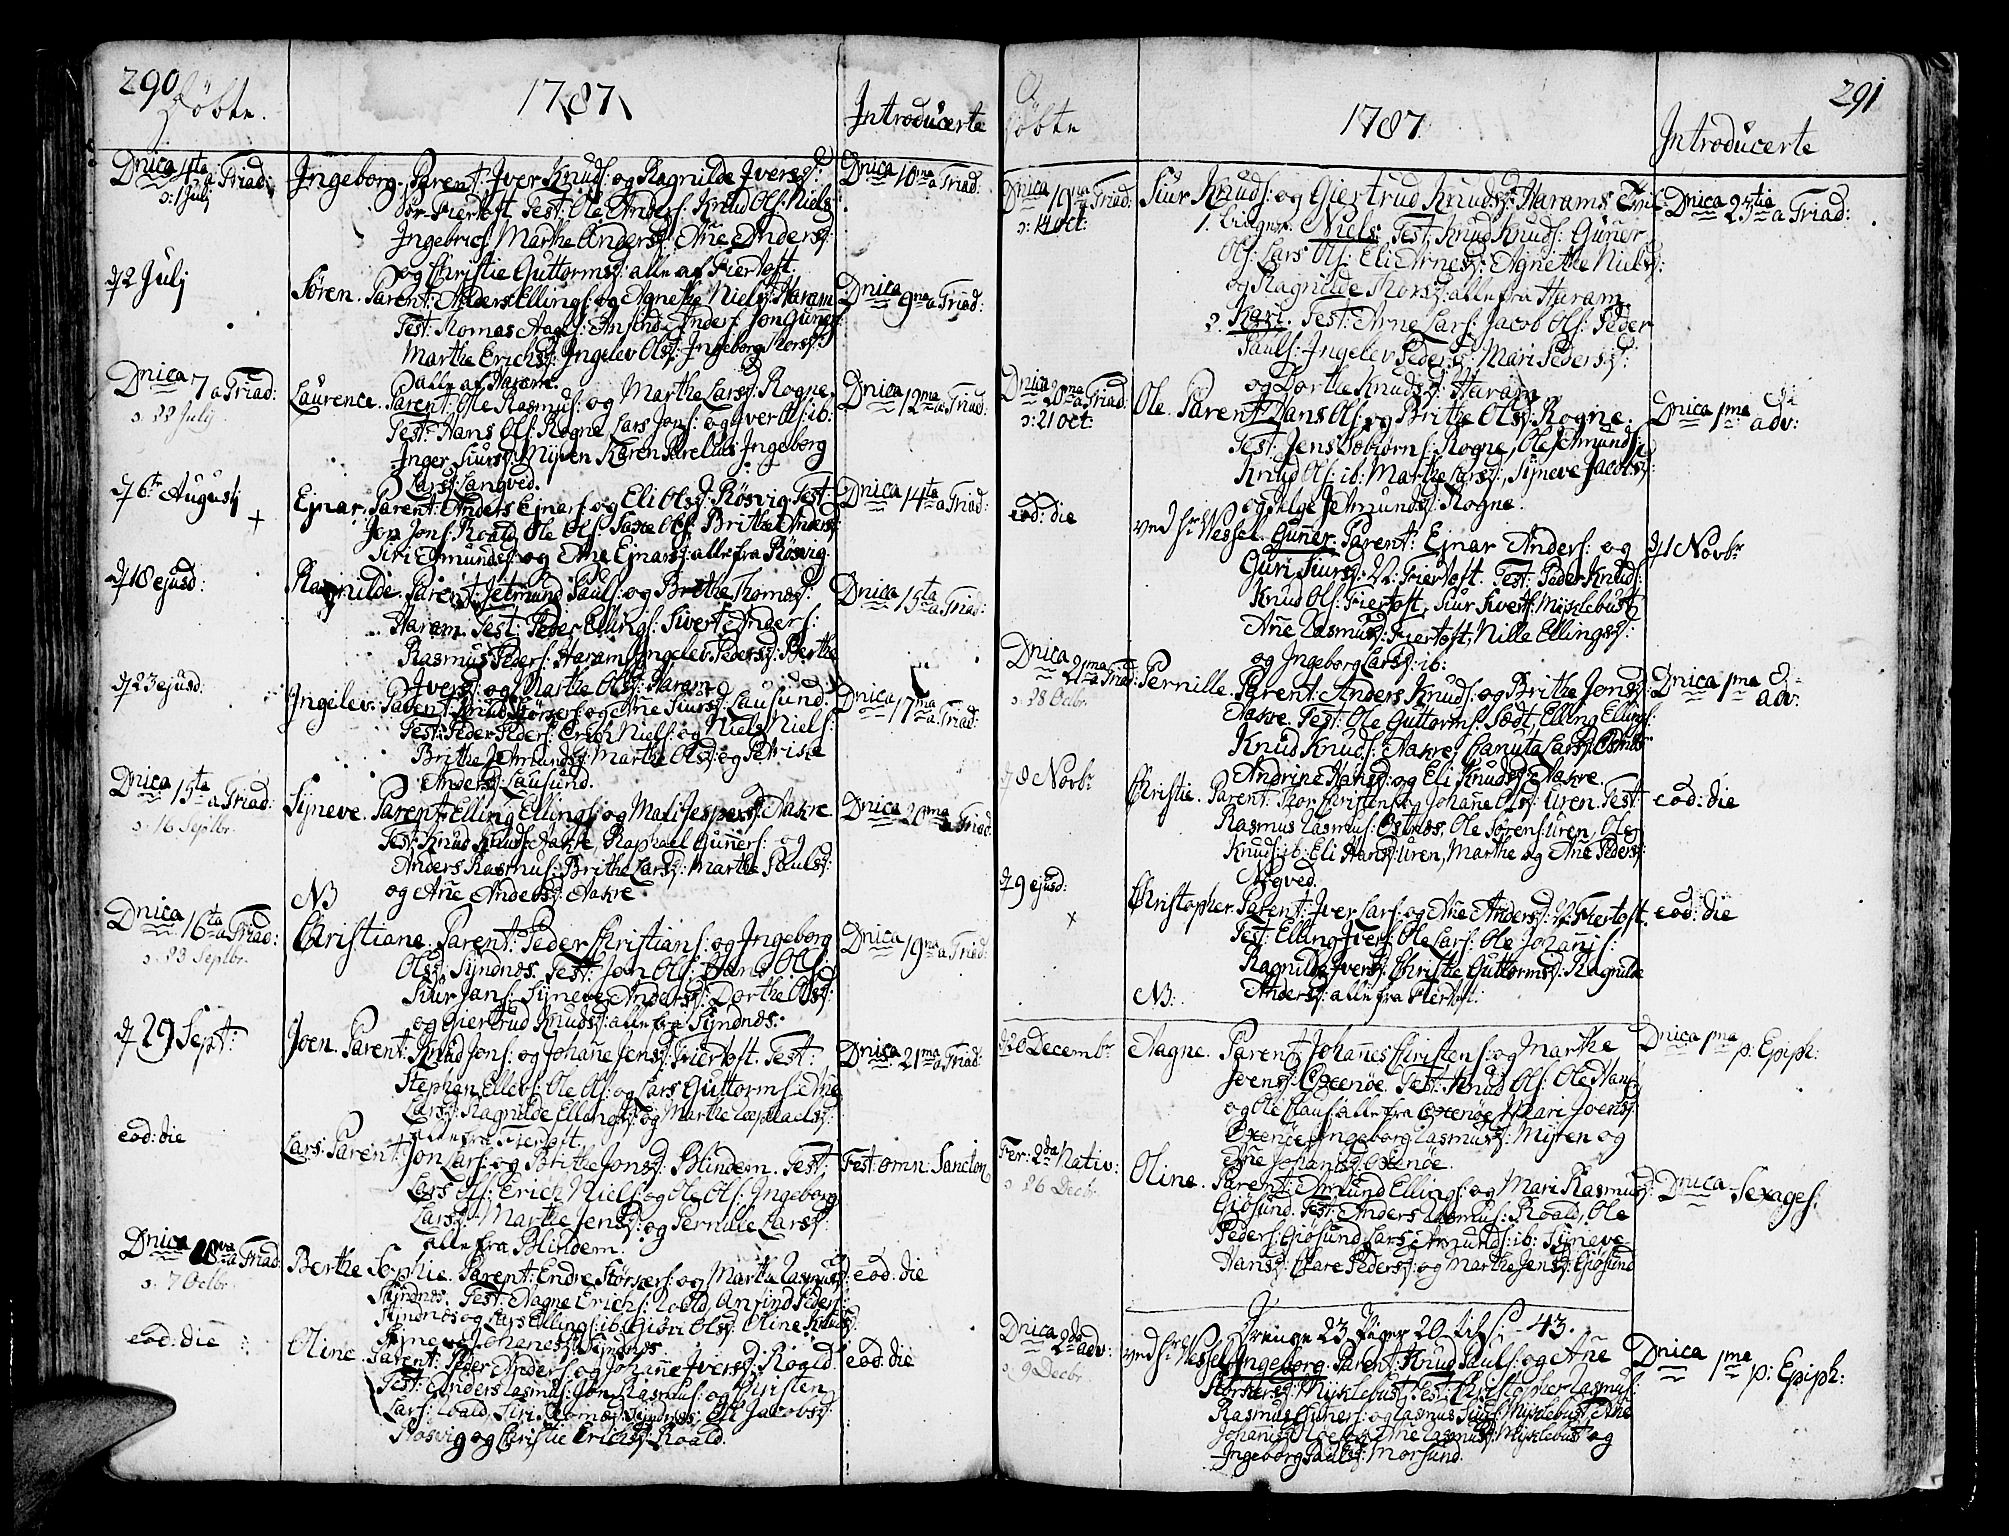 290 Döbte.
1787
Introducerte
Dnica 4ta a Triad:
ɔ: 1 Julj
Ingeborg. Parent: Iver Knuds: og Ragnilde Ivers:
Fiertoft. Test: Ole Anders: Knud Ols: Niels
Ingebrics: Marthe Anders: Añe Anders:
og Christie Guttorms: alle af Fiertoft.
Dnica 10ma a Triad:
d 2 Julj
Søren. Parent: Anders Ellings: og Agnethe Niels: Haram
Test: Thomas Aages: Amund Anders: Jon Guners:
Marthe Erichs: Ingelev Ols: Ingeborg Thors:
alle af Haram.
Dnica 9na a Triad:
Dnica 7 a Triad:
ɔ: 22 Julj.
Laurence. Parent: Ole Rasmus: og Marthe Lars: Rogne.
Test: Hans Ols: Rogne, Lars Jons: og Iver Ols: ib:
Inger Siurs: Myren Karen Ingeborg
Lars: Langved.
Dnica 12ma a Triad:
d 6te Augustj +
Ejnar. Parent: Anders Ejnars: og Eli Ols: Røsvig. Test:
Jon Jons: Roald, Ole Ols: Saxe Ols: Brithe Anders:
Siri Amunds: og Añe Ejnars: alle fra Røsvig.
Dnica 14ta a Triad:
d 18 ejusd:
Ragnilde. Parent: Jetmund Pauls: og Brithe Thomas:
Haram. Test: Peder Ellings: Sivert Anders:
Rasmus Peders: Haram, Ingelev Peders: Berthe
Ivers: og Marthe Ols: Haram.
Dnica 15ta a Triad:
d 23 ejusd:
Ingelev. Parent: Knud Størkers: og Añe Siurs: Lausund.
Test: Peder Peders: Erich Niels: og Niels Niels:
Brithe Jetmunds: Marthe Ols: og
Anders: Lausund.
Dnica 17ma a Triad:
Dnica 15ta a Triad:
ɔ: 16 Septbr.
Synneve. Parent: Elling Ellings: og Mali Jespers: Aakre
Test: Knud Knuds: Aakre, Raphael Guners: og
Anders Rasmus: Brithe Lars: Marthe Pauls:
og Añe Anders: Aakre
Dnica 20ma a Triad:
NB
Dnica 16ta a Triad:
ɔ: 23 Septbr.
Christiane. Parent: Peder Christians: og Ingeborg
Ols: Syndnes. Test: Jon Ols: Hans Ols:
Siur Jans: Synneve Anders: Dorthe Ols:
og Giertrud Knuds: alle fra Syndnes.
Dnica 19na a Triad:
d 29 Sept:
Joen. Parent: Knud Jons: og Johañe Jens: Fiertoft. Test:
Stephen Ellers: Ole Ols: og Lars Guttorms: Añe
Lars: Ragnilde Ellings: og Marthe Raphaels:
alle fra Fiertoft.
Dnica 21ma a Triad:
eod: die
Lars. Parent: Jon Lars: og Brithe Jons: Blindem. Test:
Lars Ols: Erich Niels: og Ole Ols: Ingeborg
Lars: Marthe Jens: og Pernille Lars:
alle fra Blindem.
Fest: omn: Sanctor:
Dnica 18va a Triad:
ɔ: 7 Octbr.
Berthe Sophie. Parent: Endre Størkers: og Marthe Rasmus:
Syndnes. Test: Aagne Erichs: Roald, Amund Peders:
Syndnes og Lars Ellings: ib: Giøri Ols: Oline Knuds:
Synneve Johanes: Syndnes
eod: die
eod: die
Oline. Parent: Peder Anders: og Johañe Ivers: Roald.
Test: Anders Rasmus: Jon Rasmus: og Christen
Lars: Roald, Siri Thomas: Syndnes, Eli Jacobs:
Røsvig og Christie Erichs: Roald.
eod: die
291
Döbte
1787
Introducerte
Dnica 19na a Triad:
ɔ: 14 oct:
Siur Knuds: og Giertrud Knuds: Harams
1. Niels. Test: Knud Knuds: Guner
Ols: Lars Ols: Eli Arnes: Agnethe Niels:
og Ragnilde Thors: alle fra Haram
2. Kari. Test: Arne Lars: Jacob Ols: Peder
Pauls: Ingelev Peders: Mari Peders:
og Dorthe Knuds: Haram
Dnica 25tia a Triad:
Dnica 20ma a Triad:
ɔ: 21 oct:
Ole. Parent: Hans Ols: og Brithe Ols: Rogne.
Test: Jens Rogne, Ole Amunds:
Knud Ols: ib: Marthe Lars: Synneve Jacobs:
og Helge Jetmunds: Rogne.
Dnica 1ma adv:
eod: die
ved Hr Wessel. Guner. Parent: Ejnar Anders: og
Guri Siurs: N: Fiertoft. Test: Peder Knuds:
Knud Ols: Fiertoft, Siur Siverts: Myklebust
Añe Rasmus: Fiertoft, Nille Ellings:
og Ingeborg Lars: ib:
d 1 Novbr
Dnica 21ma a Triad:
ɔ: 28 Octbr.
Pernille. Parent: Anders Knuds: og Brithe Jons:
Aakre. Test: Ole Guttorms: Sædt, Elling Ellings:
Knud Knuds: Aakre, Canuta Lars: Østnæs
Andrine Hans: og Eli Knuds: Aakre.
Dnica 1ma adv:
d 8 Novbr
Christie. Parent: Thor Christens: og Johañe Ols: Uren. Test:
Rasmus Rasmus: Østnæs, Ole Sørens: Uren, Ole
Knuds: ib: Eli Hans: Uren, Marthe og Añe Peders:
Nogved.
eod: die
d 9 ejusd: +
Christopher. Parent: Iver Lars: og Añe Anders: N: Fiertoft.
Test: Elling Ivers: Ole Lars: Ole Johañis:
Ragnilde Ivers: Christie Guttorms: Ragnilde
Anders: alle fra Fiertoft.
eod: die
NB:
d 20 Decembr
Aagne. Parent: Johañes Christens: og Marthe
Joens: Oxenøe. Test: Knud Ols: Ole Hans:
og Ole Claus: alle fra Oxenøe, Mari Joens:
Oxenøe, Ingeborg Rasmus: Myren og
Añe Johans: Oxenøe.
Dnica 1ma p: Epiph:
Fer: 2da Nativ:
ɔ: 26 Decbr.
Oline. Parent: Amund Ellings: og Mari Rasmus:
Giøsund. Test: Anders Rasmus: Roald, Ole
Peders: Giøsund, Lars Amunds: ib: Synneve
Hans: Clare Peders: og Marthe Jens: Giøsund
Dnica Sexages:
Drenge 23 Piger 20 til S. - 43.
Dnica 2da adv:
ɔ: 9 Decbr.
ved Hr Wessel Ingeborg. Parent: Knud Pauls: og Añe
Størkers: Myklebust. Test: Christopher Rasmus:
Rasmus Guners: og Rasmus Siurs: Myklebust, Añe
Johanis: og Añe Rasmus: Myklebust og
Ingeborg Pauls: Morsund.
Dnica 1ma p: Epiph: